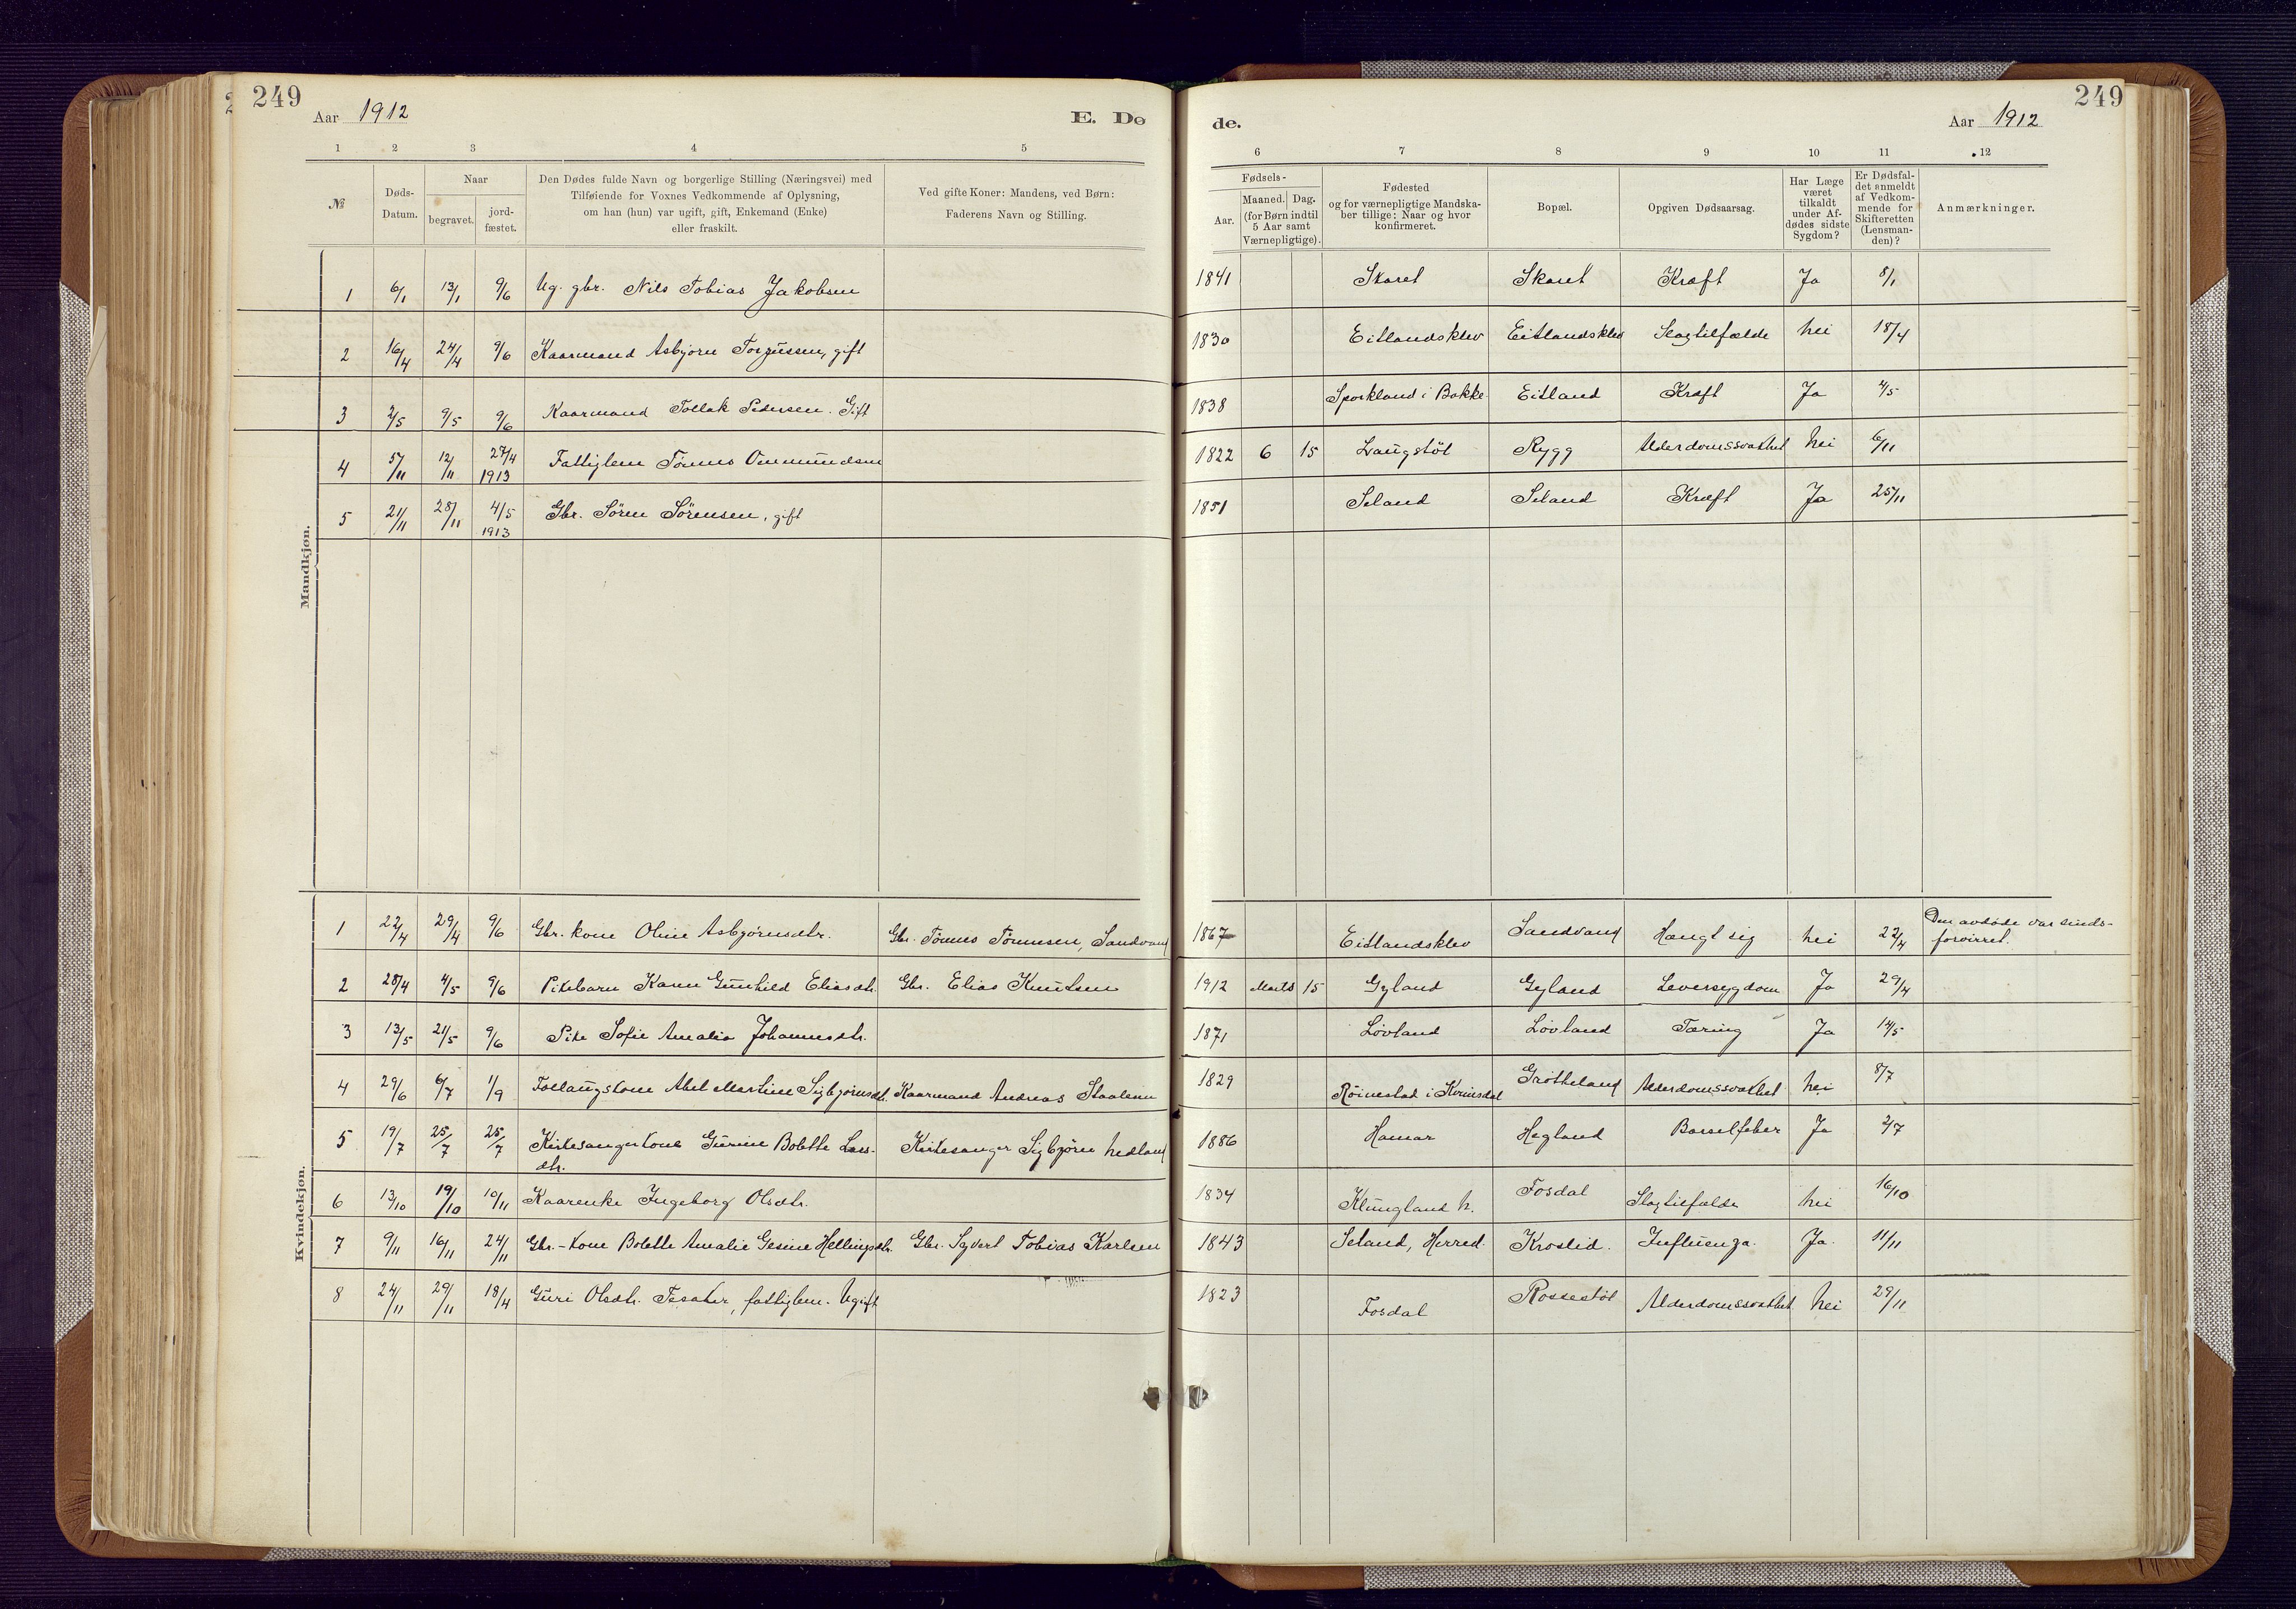 249
Aar 1912
E. Dø
de.
Aar 1912
249
1 2 3 4 5 6 7 8 9 10 11 12
№
Døds-
Datum.
Naar
begravet.
jord-
fæstet.
Den Dødes fulde Navn og borgerlige Stilling (Næringsvei) med
Tilføiende for Voxnes Vedkommende af Oplysning,
om han (hun) var ugift, gift, Enkemand (Enke)
eller fraskilt.
Ved gifte Koner: Mandens, ved Børn:
Faderens Navn og Stilling.
Fødsels-
Aar.
Maaned. Dag.
(for Børn indtil
5 Aar samt
Værnepligtige).
Fødested
og for værnepligtige Mandska-
ber tillige: Naar og hvor
konfirmeret.
Bopæl.
Opgiven Dødsaarsag.
Har Læge
været
tilkaldt
under Af-
dødes sidste
Sygdom?
Er Dødsfal-
det anmeldt
af Vedkom-
mende for
Skifteretten
(Lensman-
den)?
Anmærkninger.
Mandkjøn.
1 6/1 13/1 9/6 Ug. gbr. Nils Tobias Jakobsen 1841 Skaret Skaret Kræft Ja 8/1
2 16/4 24/4 9/6 Kaarmand Asbjørn Torjussen, gift 1830 Eitlandsklev Eitlandsklev Slagtilfælde Nei 18/4
3 2/5 9/5 9/6 Kaarmand Tollak Pedersen. Gift 1838 Sporkland i Bakke Eitland Kræft Ja 4/5
4 5/11 12/11 27/4 1913 Fattiglem Tønnes Ommundsen 1822 6 15 Laugstøl Rygg Alderdomssvakhet Nei 6/11
5 21/11 28/11 4/5 1913 Gbr. Søren Sørensen, gift 1851 Seland Seland Kræft Ja 25/11
Kvindekjøn.
1 22/4 29/4 9/6 Gbr. kone Oline Asbjørnsdtr. Gbr. Tønnes Tønnesen, Sandvand 1867 Eitlandsklev Sandvand Hængt sig Nei 22/4 Den avdøde var sinds-
forvirret.
2 28/4 4/5 9/6 Pikebarn Karen Gunhild Eliasdtr. Gbr. Elias Knudsen 1912 Marts 15 Gyland Gyland Leversygdom Ja 29/4
3 13/5 21/5 9/6 Pike Sofie Amalia Johannesdtr. 1871 Løvland Løvland Tæring Ja 14/5
4 29/6 6/7 1/9 Follaugskone Abel Martine Sigbjørnsdtr. Kaarmand Andreas Staalesen 1829 Röinestad i Kvinesdal Grøtteland Alderdomssvakhet Nei 8/7
5 19/7 25/7 25/7 Kirkesangerkone Gurine Bolette Lars-
dtr. Kirkesanger Sigbjørn Nedland 1886 Hamar Hegland Barselfeber Ja 2/7
6 13/10 19/10 10/11 Kaarenke Ingeborg Olsdtr. 1834 Klungland N. Fosdal Slagtilfælde Nei 16/10
7 9/11 16/11 24/11 Gbr.-kone Bolette Amalie Gesine Hellingsdtr. Gbr. Syvert Tobias Karlsen 1843 Seland, Herred. Kroslid. Influenza. Ja. 11/11
8 24/11 29/11 18/4 Guri Olsdtr. Tesaker, fattiglem. Ugift 1823 Fosdal Rossestøl Alderdomssvakhet Nei 29/11